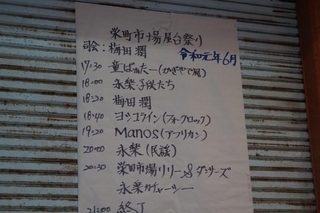 栄町市場屋台祭り
令和元年6月
司会：梅田潤
17:30 童ばぁたー(かぎやで風)
18:00 永楽子供たち
18:20 梅田潤
18:40 ヨシユクイン(フォークロック)
19:20 Manos(アフリカン)
20:00 永楽(民謡)
20:30 栄町市場リリース&ダンサーズ
永楽カチャーシー
21:00 終了